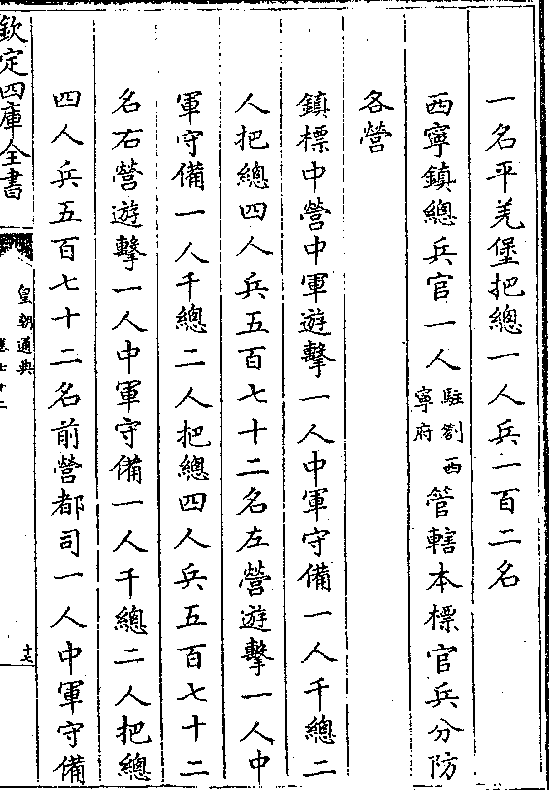 一名平羌堡把總一人兵一百二名
西寧鎮總兵官一人駐劄西寧府管轄本標官兵分防
各營
鎮標中營中軍遊擊一人中軍守備一人千總二
人把總四人兵五百七十二名左營遊擊一人中
軍守備一人千總二人把總四人兵五百七十二
名右營遊擊一人中軍守備一人千總二人把總
四人兵五百七十二名前營都司一人中軍守備
欽定四庫全書
皇朝通典